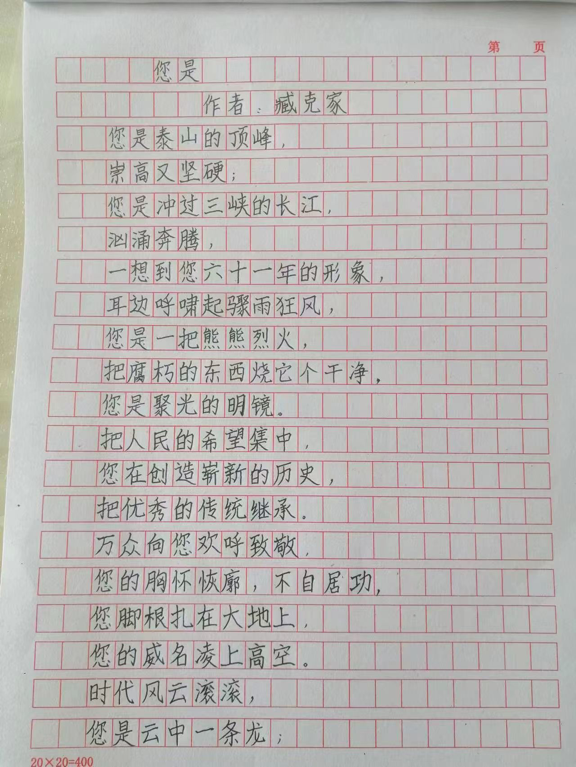 第 页
您是
作者：臧克家
您是泰山的顶峰，
崇高又坚硬；
您是冲过三峡的长江，
汹涌奔腾，
一想到您六十一年的形象，
耳边呼啸起骤雨狂风，
您是一把熊熊烈火，
把腐朽的东西烧它个干净，
您是聚光的明镜。
把人民的希望集中，
您在创造崭新的历史，
把优秀的传统继承。
万众向您欢呼致敬，
您的胸怀恢廓，不自居功，
您脚根扎在大地上，
您的威名凌上高空。
时代风云滚滚，
您是云中一条龙；
20×20=400